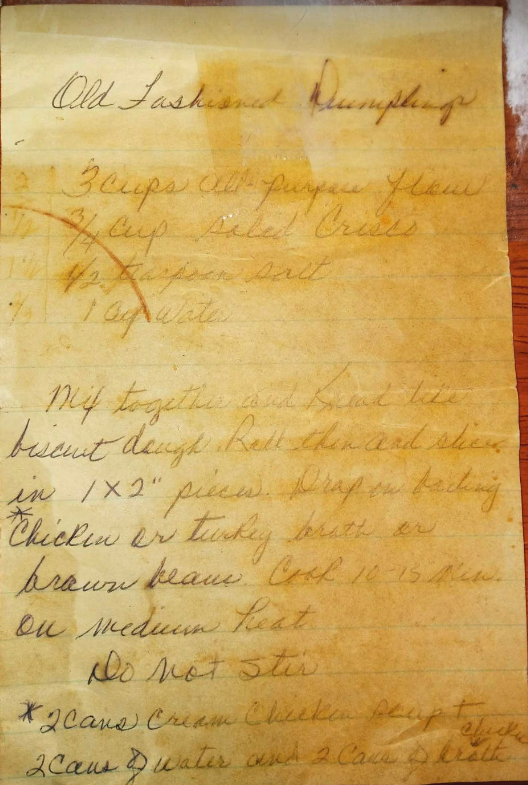 Old Fashioned Dumplings
3 cups all-purpose flour
3/4 cup Crisco
1/2 teaspoon salt
1 cup Water
Mix together and Knead like
biscuit dough. Roll thin and slice
in 1 X 2" pieces. Drop on boiling
*Chicken or turkey broth or
brown beans. Cook 10-15 min.
on medium heat.
Do Not Stir
* 2 cans Cream Chicken soup +
chicken
2 Cans of water and 2 Cans of broth